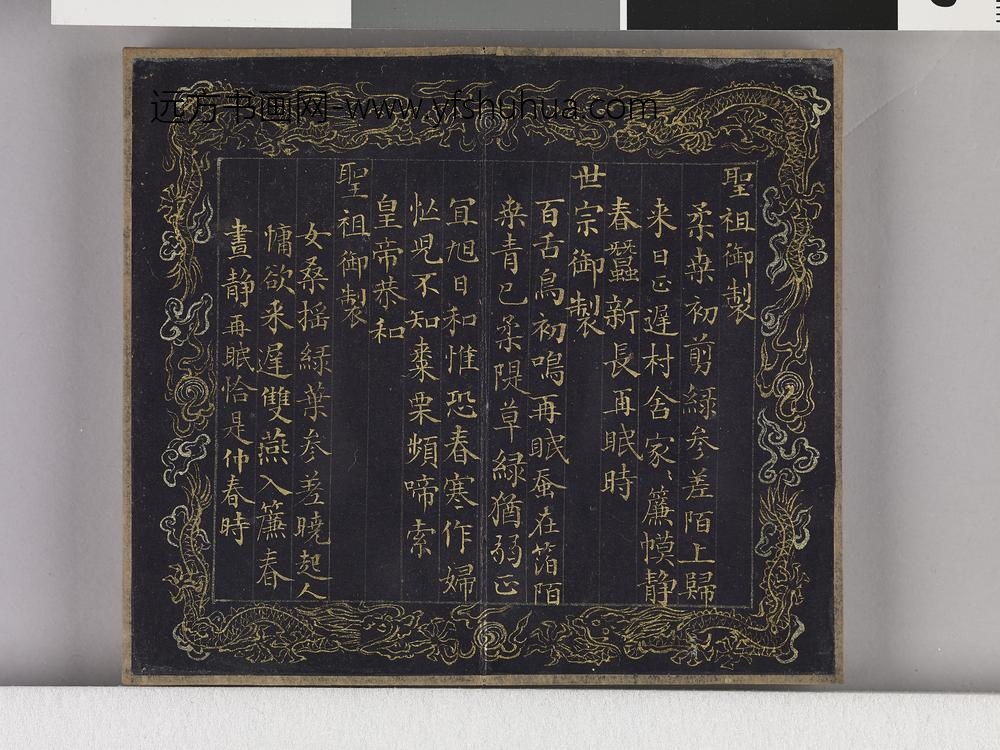 远方书画网-www.yfshuhua.com
聖祖御製
柔桒初剪綠参差陌上歸
来日正遲村舍家〻簾幙静
春蠶新長再眠時
世宗御製
百舌鳥初鳴再眠蚕在箔陌
桒青已柔隄草綠猶弱正
冝旭日和惟恐春寒作婦
忙児不知棗栗頻啼索
皇帝恭和
聖祖御製
女桑摇綠葉参差曉起人
慵欲来遲雙燕入簾春
晝静再眠恰是仲春時